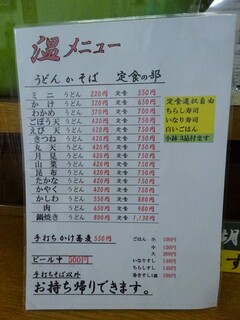 温メニュー
うどん か そば 定食の部
ミニ うどん 220円 定食 550円
かけ うどん 320円 定食 650円
わかめ うどん 370円 定食 700円
ごぼう天 うどん 420円 定食 750円
えび天 うどん 420円 定食 750円
きつね うどん 420円 定食 750円
丸天 うどん 420円 定食 750円
月見 うどん 420円 定食 750円
山菜 うどん 420円 定食 750円
昆布 うどん 420円 定食 750円
たかな うどん 420円 定食 750円
かやく うどん 420円 定食 750円
かしわ うどん 550円 定食 880円
肉 うどん 650円 定食 980円
鍋焼き うどん 800円 定食 1,130円
定食選択自由
ちらし寿司
いなり寿司
白いごはん
小鉢3品付ます
手打ちかけ蕎麦 550円
ビール中 500円
手打ちそば以外
お持ち帰りできます。
ごはん 小 100円
中 150円
大 200円
いなりすし 140円
ちらしすし 140円